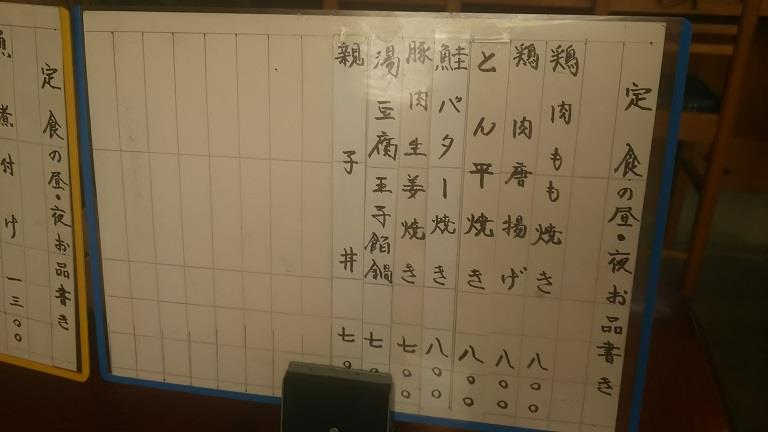 定食の昼・夜お品書き
鶏肉もも焼き 八〇〇
鶏肉唐揚げ 八〇〇
とん平焼き 八〇〇
鮭バター焼き 八〇〇
豚肉生姜焼き 七〇〇
湯豆腐玉子餡鍋 七〇
親子丼 七〇
定食の昼・夜お品書き
煮付け 一三〇〇